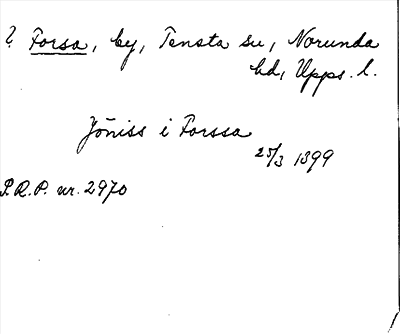 ? Forsa, by, Tensta sn, Norunda
hd, Upps. l.
Jōniss i Forssa
25/3 1399
P.R.P. nr. 2970